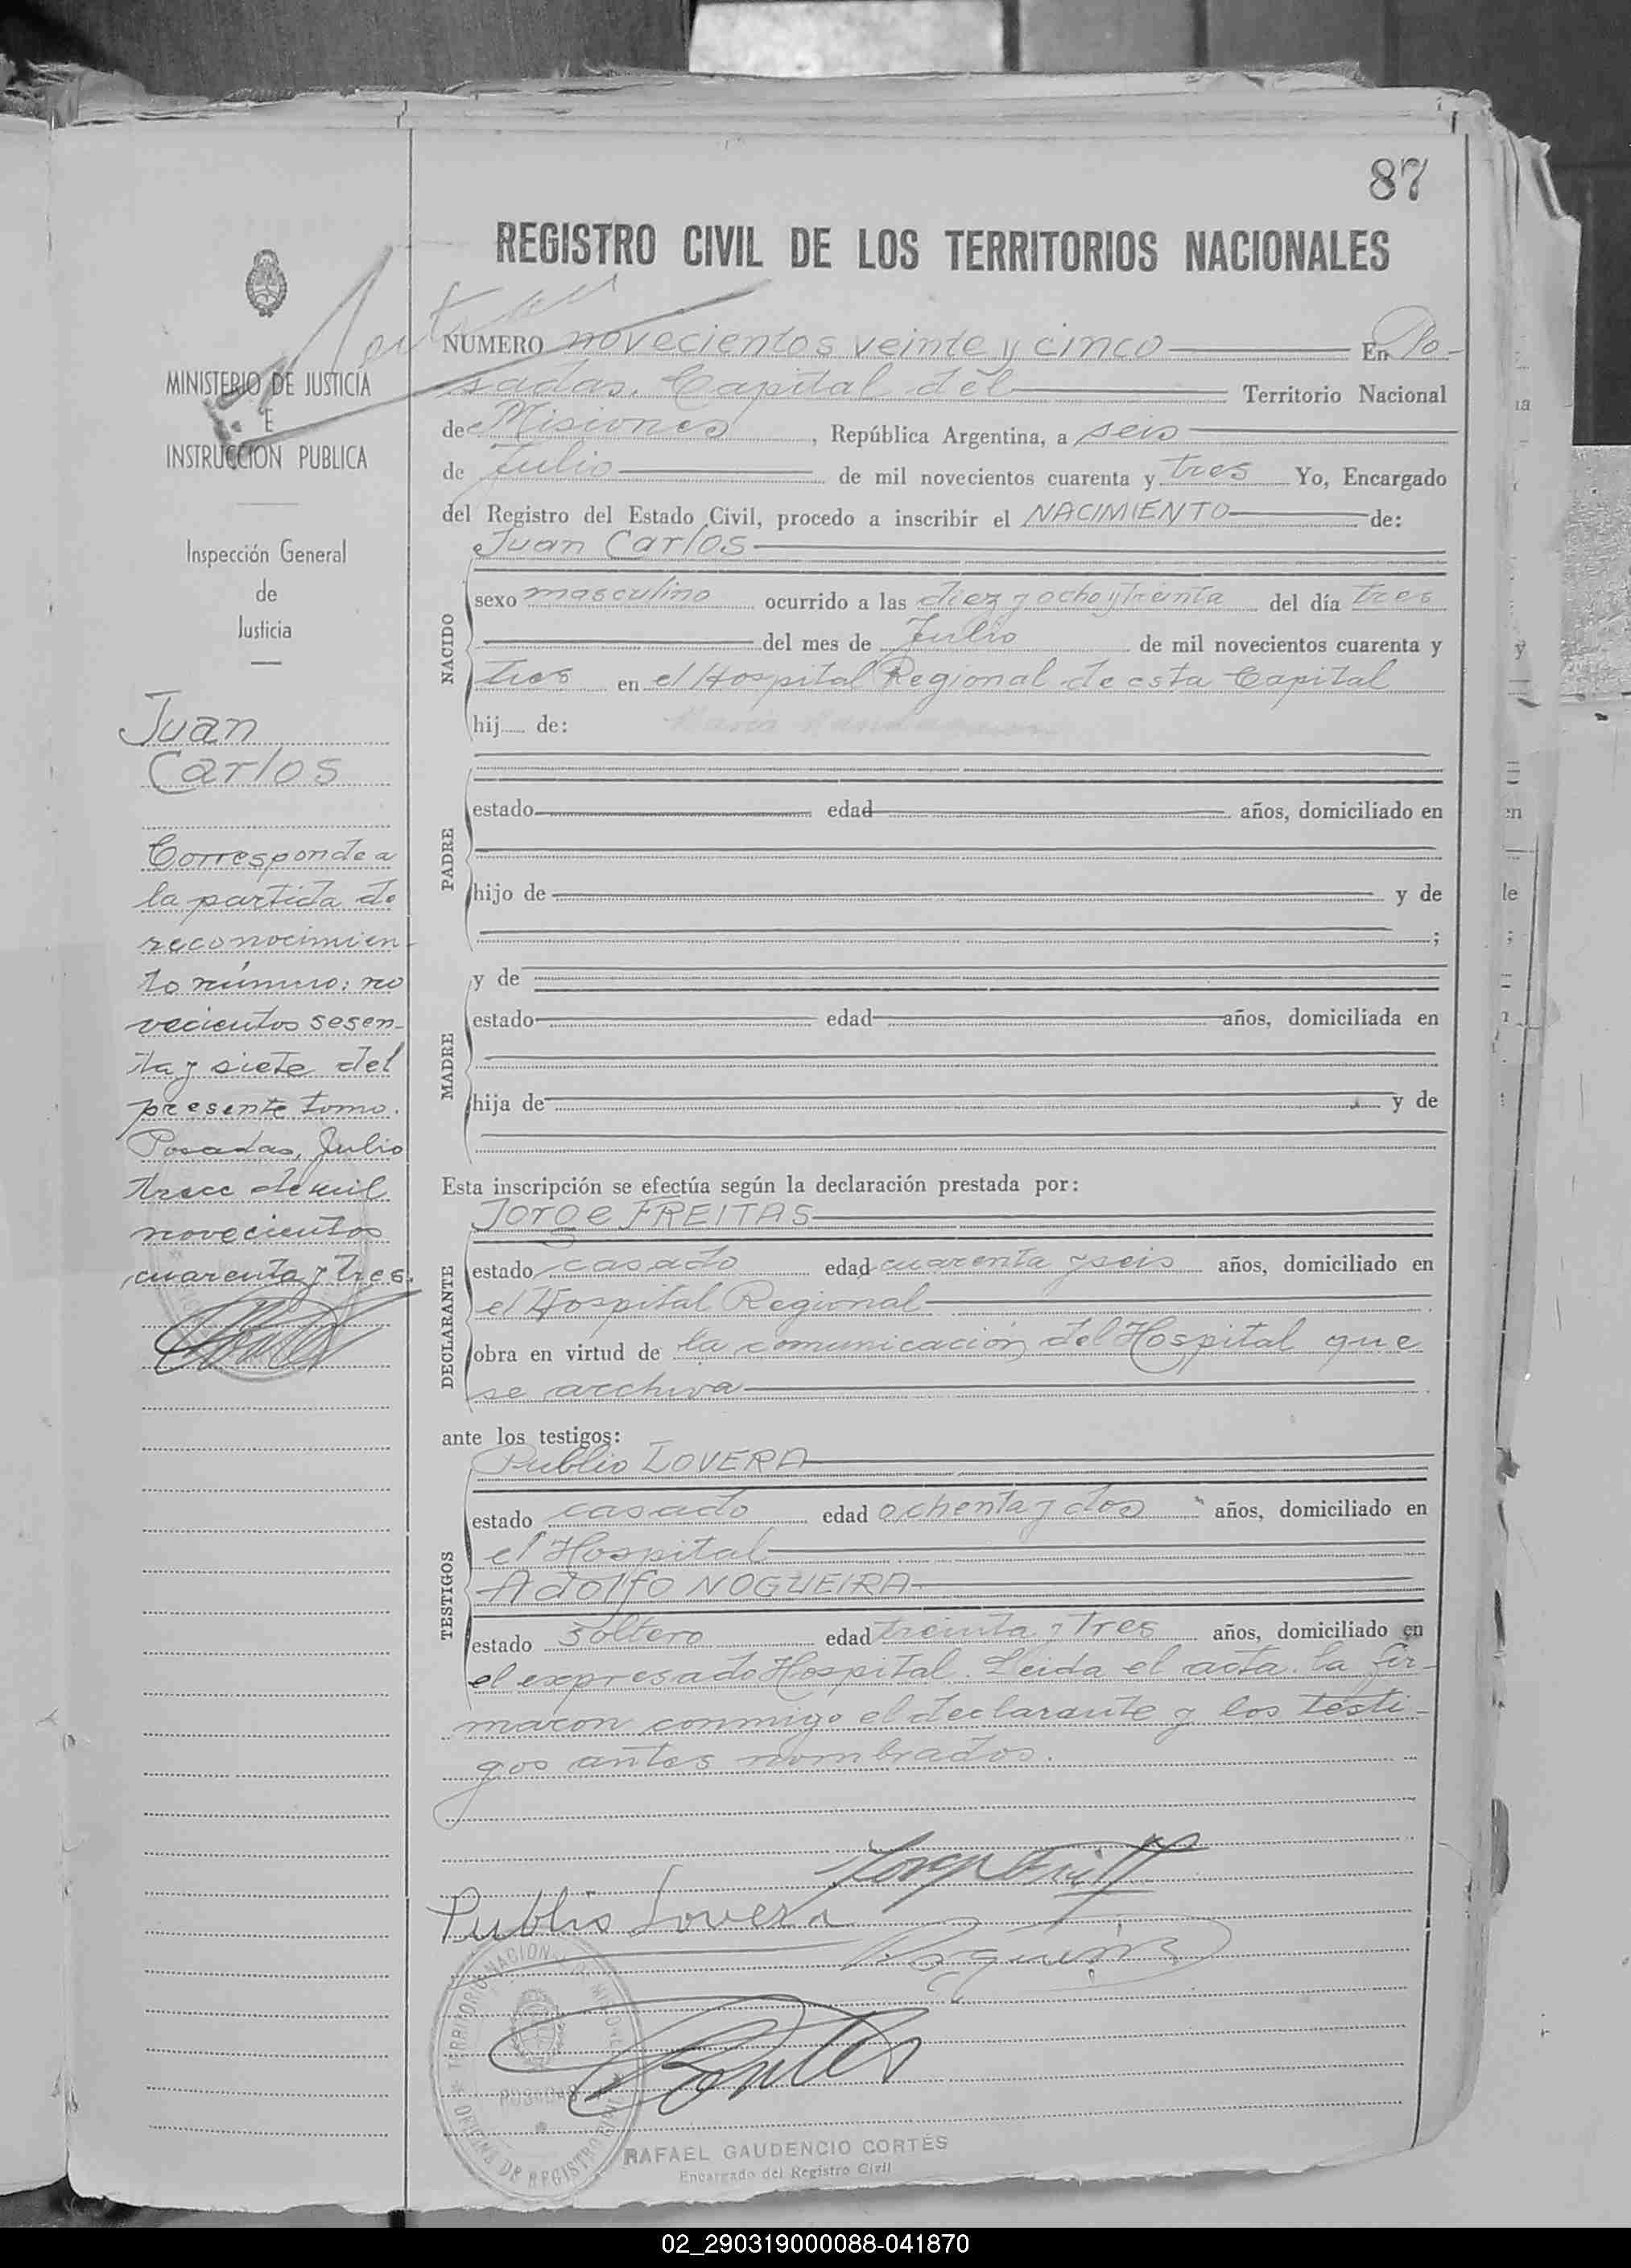 87
REGISTRO CIVIL DE LOS TERRITORIOS NACIONALES
MINISTERIO DE JUSTICIA
E
INSTRUCCION PUBLICA
Inspección General
de
Justicia
Juan
Carlos
Corresponde a
la partida de
reconocimien-
to número: no
vecientos sesen-
ta y siete del
presente tomo.
Posadas, Julio
trece de mil
novecientos
cuarenta y tres.
NUMERO novecientos veinte y cinco En Po-
sadas, Capital del Territorio Nacional
de Misiones, República Argentina, a seis
de Julio de mil novecientos cuarenta y tres Yo, Encargado
del Registro del Estado Civil, procedo a inscribir el NACIMIENTO de:
NACIDO
Juan Carlos
sexo masculino ocurrido a las diez y ocho y treinta del día tres
del mes de Julio de mil novecientos cuarenta y
tres en el Hospital Regional de esta Capital
hij de:
PADRE
estado edad años, domiciliado en
hijo de y de
;
MADRE
y de
estado edad años, domiciliada en
hija de y de
Esta inscripción se efectúa según la declaración prestada por:
DECLARANTE
Jorge FREITAS
estado casado edad cuarenta y seis años, domiciliado en
el Hospital Regional
obra en virtud de la comunicación del Hospital que
se archiva
ante los testigos:
TESTIGOS
Publio LOVERA
estado casado edad ochenta y dos años, domiciliado en
el Hospital
Adolfo NOGUEIRA
estado soltero edad treinta y tres años, domiciliado en
el expresado Hospital. Leida el acta, la fir-
maron conmigo el declarante y los testi-
gos antes nombrados.
Publio Lovera
OFICINA DE REGISTRO CIVIL
RAFAEL GAUDENCIO CORTÉS
Encargado del Registro Civil
02_290319000088-041870